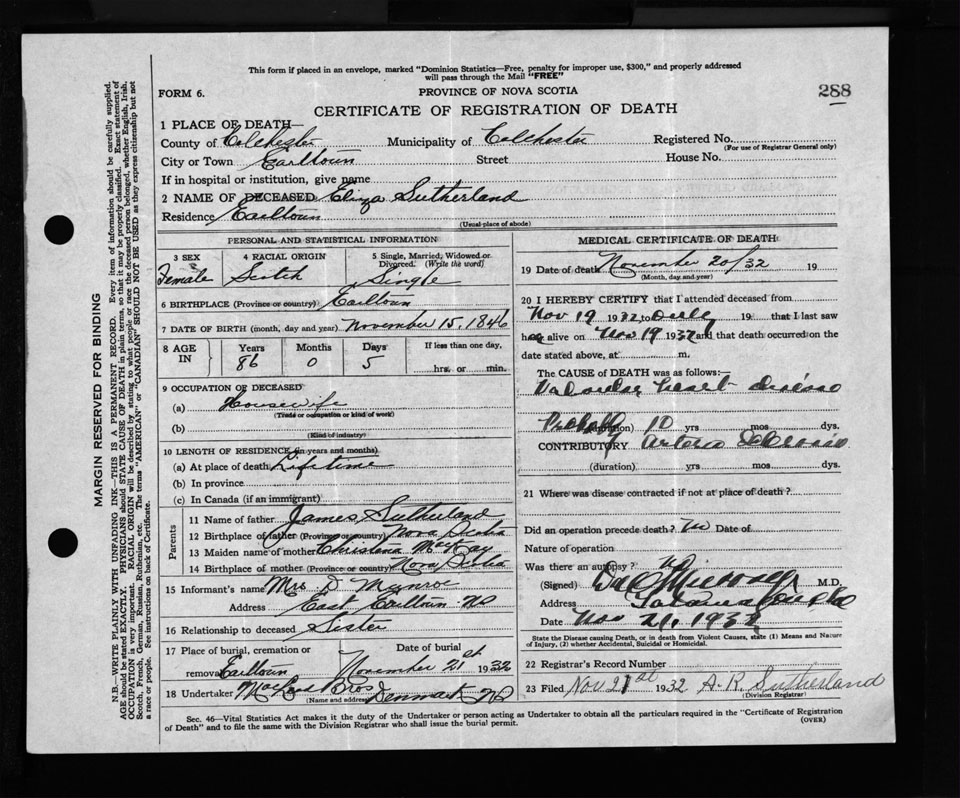 This form if placed in an envelope, marked "Dominion Statistics—Free, penalty for improper use, $300," and properly addressed
will pass through the Mail "FREE"
288
FORM 6.
PROVINCE OF NOVA SCOTIA
CERTIFICATE OF REGISTRATION OF DEATH
1 PLACE OF DEATH—
County of Colchester Municipality of Colchester Registered No.
(For use of Registrar General only)
City or Town Earltown Street House No.
If in hospital or institution, give name
2 NAME OF DECEASED Eliza Sutherland
Residence Earltown
(Usual place of abode)
PERSONAL AND STATISTICAL INFORMATION
3 SEX 4 RACIAL ORIGIN 5 Single, Married, Widowed or
Divorced. (Write the word)
Female Scotch Single
6 BIRTHPLACE (Province or country) Earltown
7 DATE OF BIRTH (month, day and year) November 15, 1846
8 AGE IN Years Months Days If less than one day,
86 0 5 hrs. or min.
9 OCCUPATION OF DECEASED
(a) Housewife
(Trade or occupation or kind of work)
(b)
(Kind of industry)
10 LENGTH OF RESIDENCE (in years and months)
(a) At place of death Lifetime
(b) In province
(c) In Canada (if an immigrant)
Parents
11 Name of father James Sutherland
12 Birthplace of father (Province or country) Nova Scotia
13 Maiden name of mother Christena MacKay
14 Birthplace of mother (Province or country) Nova Scotia
15 Informant's name Mrs D Munroe
Address East Earltown NS
16 Relationship to deceased Sister
17 Place of burial, cremation or Date of burial
removal Earltown November 21st 1932
18 Undertaker MacLeod Bros Denmark NS
(Name and address)
MEDICAL CERTIFICATE OF DEATH
19 Date of death November 20/32 19
(Month, day and year)
20 I HEREBY CERTIFY that I attended deceased from
Nov 19 1932 to 19 that I last saw
her alive on Nov 19 1932 and that death occurred on the
date stated above, at m.
The CAUSE of DEATH was as follows:
Valvular heart disease
Probably (duration) 10 yrs mos dys.
CONTRIBUTORY Arterio Sclerosis
(duration) yrs. mos dys.
21 Where was disease contracted if not at place of death?
Did an operation precede death? No Date of
Nature of operation
Was there an autopsy? No
(Signed) M.D.
Address Tatamagouche
Date Nov 21, 1932
State the Disease causing Death, or in death from Violent Causes, state (1) Means and Nature
of Injury, (2) whether Accidental, Suicidal or Homicidal.
22 Registrar's Record Number
23 Filed Nov 21st 1932 A. R. Sutherland
(Division Registrar)
Sec. 46—Vital Statistics Act makes it the duty of the Undertaker or person acting as Undertaker to obtain all the particulars required in the "Certificate of Registration
of Death" and to file the same with the Division Registrar who shall issue the burial permit.
(OVER)
MARGIN RESERVED FOR BINDING
N.B.—WRITE PLAINLY WITH UNFADING INK—THIS IS A PERMANENT RECORD. Every item of information should be carefully supplied.
AGE should be stated EXACTLY. PHYSICIANS should STATE CAUSE OF DEATH in plain terms, so that it may be properly classified. Exact statement of
OCCUPATION is very important. RACIAL ORIGIN will be described by stating to what people or race the deceased person belonged, whether English, Irish,
Scotch, French, German, Russian, Ruthenian, etc. The terms "AMERICAN" or "CANADIAN" SHOULD NOT BE USED as they express citizenship but not
a race or people. See instructions on back of Certificate.